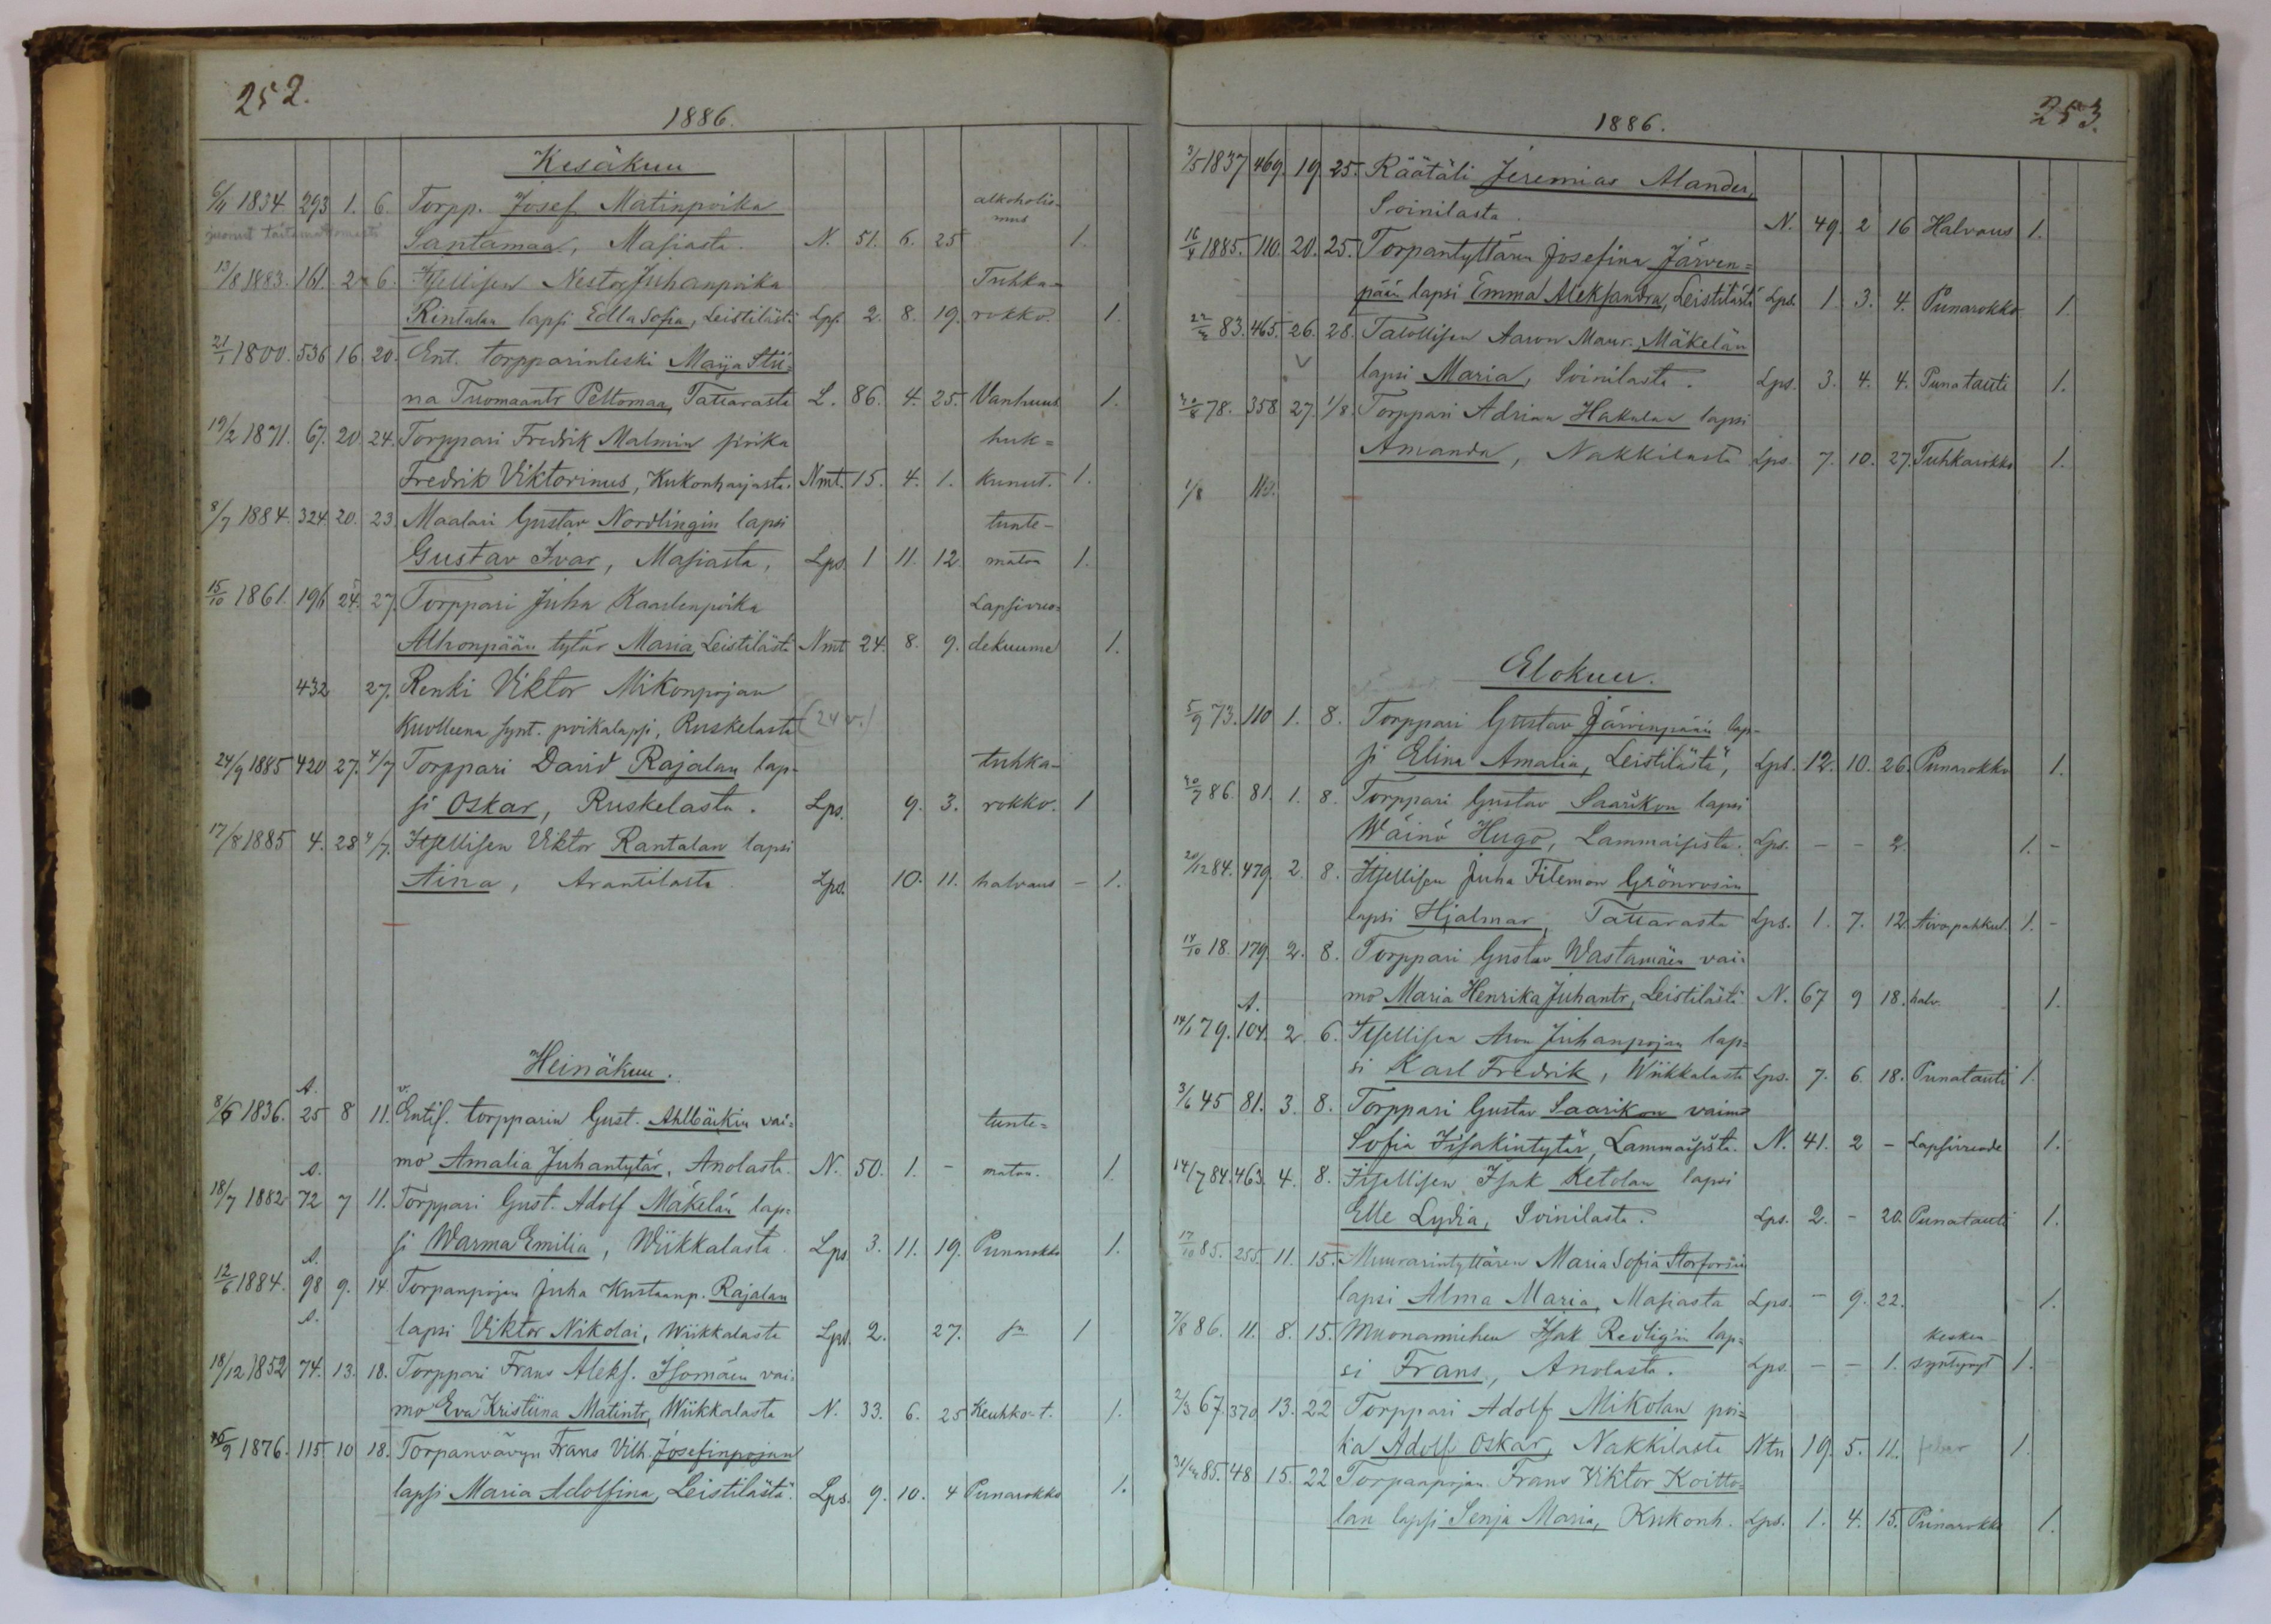 252.
1886.
Kesäkuu
6/11 1834 293 1. 6. Torpp. Josef Matinpoika alkoholis-
mus
Santamaa, Masiasta. N. 51. 6. 25 1.
13/8 1883. 161. 2 6. Itsellisen Nestor Juhanpoika Tuhka-
Rintalan lapsi Edla Sofia, Leistilästä Lps. 2. 8. 19. rokko. 1.
21/1 1800. 536 16. 20. Ent. torpparinleski Maija Stii-
na Tuomaantr Peltomaa, Tattarasta L. 86. 4. 25. Vanhuus 1.
19/2 1871. 67. 20. 24. Torppari Fredrik Malmin poika huk-
Fredrik Viktorinus, Kukonharjasta. Nmt. 15. 4. 1. kunut. 1.
8/7 1884. 324 20. 23 Maalari Gustav Nordlingin lapsi tunte-
Gustav Ivar, Masiasta, Lps. 1 11. 12. maton 1.
15/10 1861. 196 24. 27. Torppari Juha Kaarlenpoika Lapsivuo-
Alhonpään tytär Maria, Leistilästä Nmt 24. 8. 9. dekuume 1.
432 27. Renki Viktor Mikonpojan
Kuolleena synt. poikalapsi, Ruskelasta (24 v.)
24/9 1885 420 27. 4/7 Torppari David Rajalan lap- tuhka-
si Oskar, Ruskelasta. Lps. 9. 3. rokko. 1
17/8 1885 4. 28 4/7. Itsellisen Viktor Rantalan lapsi
Aina, Arantilasta. Lps. 10. 11. halvaus - 1.
Heinäkuu.
A.
8/6 1836. 25 8 11. Entis. torpparin Gust. Ahlbäckin vai- tunte-
mo Amalia Juhantytär, Anolasta. N. 50. 1. - maton. 1.
A.
18/7 1882 72 7 11. Torppari Gust. Adolf Mäkelän lap-
si Warma Emilia, Wiikkalasta. Lps. 3. 11. 19. Punarokko 1.
A.
12/6 1884. 98 9. 14 Torpanpojan Juha Kustaanp. Rajalan
lapsi Viktor Nikolai, Wiikkalasta Lps. 2. 27. 1
A.
18/12 1852 74. 13. 18. Torppari Frans Aleks. Isomäen vai-
mo Eva Kristiina Matintr, Wiikkalasta N. 33. 6. 25 Keuhko-t. 1.
1876. 115. 10 18. Torpanvävyn Frans Vilh. Josefinpojan
lapsi Maria Adolfina, Leistilästä. Lps. 9. 10. 4 Punarokko 1.
253.
1886.
3/5 1837 469. 19 25. Räätäli Jeremias Alander,
Soinilasta. N. 49. 2 16 Halvaus 1.
1885. 110. 20. 25. Torpantyttären Josefina Järven-
pään lapsi Emma Aleksandra, Leistilästä Lps. 1. 3. 4. Punarokko 1.
83. 465. 26. 28. Talollisen Aaron Maur. Mäkelän
lapsi Maria, Soinilasta. Lps. 3. 4. 4. Punatauti 1.
78. 358 27. 1/8. Torppari Adrian Hakalan lapsi
Amanda, Nakkilasta Lps. 7. 10. 27. Tuhkarokko 1.
1/8
Elokuu.
5/9 73. 110 1. 8. Torppari Gustav Järvinpään lap-
si Elina Amalia, Leistilästä, Lps. 12. 10. 26. Punarokko 1.
86. 81. 1. 8. Torppari Gustav Saarikon lapsi
Wäinö Hugo, Lammaisista. Lps. - - 2. 1. -
20/12 84. 479. 2. 8. Itsellisen Juha Filemon Grönroosin
lapsi Hjalmar, Tattarasta Lps. 1. 7. 12. 1. -
14/10 18. 179. 2. 8. Torppari Gustav Wastamäen vai-
mo Maria Henrika Juhantr, Leistilästä N. 67 9 18. halv. 1.
A.
14/1 79. 104. 2. 6. Itsellisen Aron Juhanpojan lap-
si Karl Fredrik, Wiikkalasta Lps. 7. 6. 18. Punatauti 1.
3/6 45 81. 3. 8. Torppari Gustav Saarikon vaimo
Sofia Iisakintytär, Lammaisista. N. 41. 2 - Lapsivuode 1.
14/7 84. 463. 4. 8. Itsellisen Isak Ketolan lapsi
Elle Lydia, Soinilasta. Lps. 2. - 20. Punatauti 1.
17/10 85. 255. 11. 15. Muurarintyttären Maria Sofia Storforsin
lapsi Alma Maria, Masiasta Lps. - 9. 22. 1.
7/8 86. 11. 8. 15. Muonamiehen Isak Redligin lap- kesken-
si Frans, Anolasta. Lps. - - 1. syntynyt 1.
2/3 67. 370. 13. 22 Torppari Adolf Mikolan poi-
ka Adolf Oskar, Nakkilasta Ntn 19. 5. 11. 1.
85. 48 15. 22 Torpanpojan Frans Viktor Koitto-
lan lapsi Senja Maria, Kukonh. Lps. 1. 4. 15. Punarokko 1.